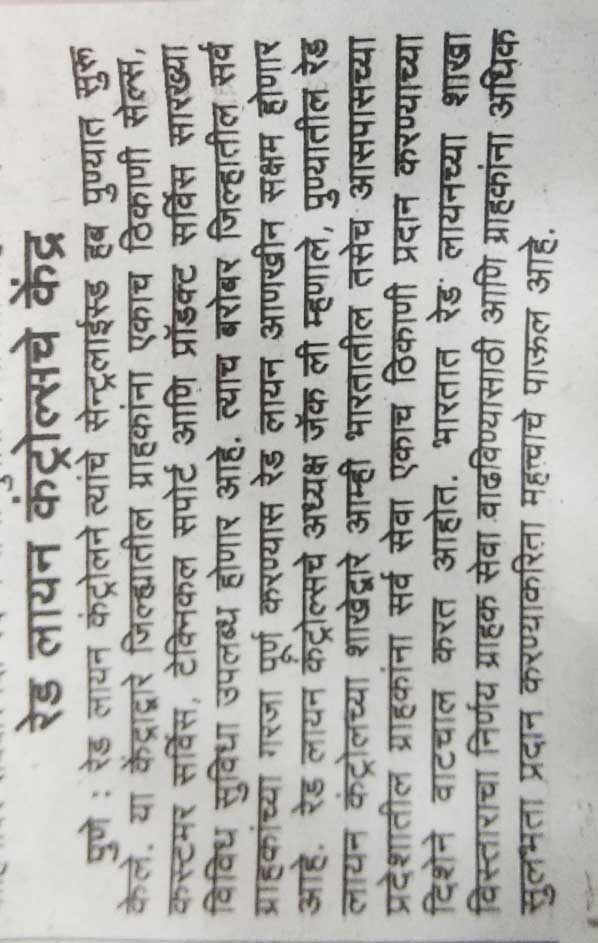 रेड लायन कंट्रोल्सचे केंद्र
पुणे : रेड लायन कंट्रोलने त्यांचे सेन्ट्रलाईस्ड हब पुण्यात सुरू
केले. या केंद्राद्वारे जिल्ह्यातील ग्राहकांना एकाच ठिकाणी सेल्स,
कस्टमर सर्विस, टेक्निकल सपोर्ट आणि प्रॉडक्ट सर्विस सारख्या
विविध सुविधा उपलब्ध होणार आहे. त्याच बरोबर जिल्हातील सर्व
ग्राहकांच्या गरजा पूर्ण करण्यास रेड लायन आणखीन सक्षम होणार
आहे. रेड लायन कंट्रोल्सचे अध्यक्ष जॅक ली म्हणाले, पुण्यातील रेड
लायन कंट्रोलच्या शाखेद्वारे आम्ही भारतातील तसेच आसपासच्या
प्रदेशातील ग्राहकांना सर्व सेवा एकाच ठिकाणी प्रदान करण्याच्या
दिशेने वाटचाल करत आहोत. भारतात रेड लायनच्या शाखा
विस्ताराचा निर्णय ग्राहक सेवा वाढविण्यासाठी आणि ग्राहकांना अधिक
सुलभता प्रदान करण्याकरिता महत्त्वाचे पाऊल आहे.